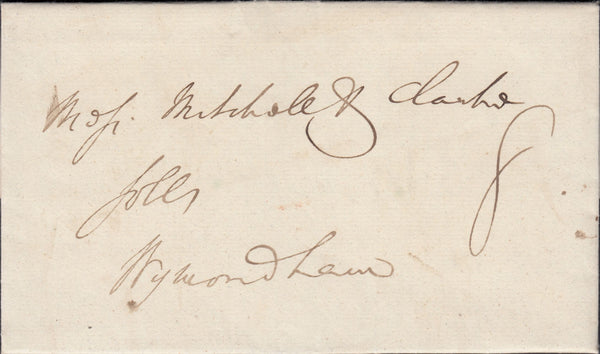 Mess. Mitchell & Clarke
solrs
Wymondham
8